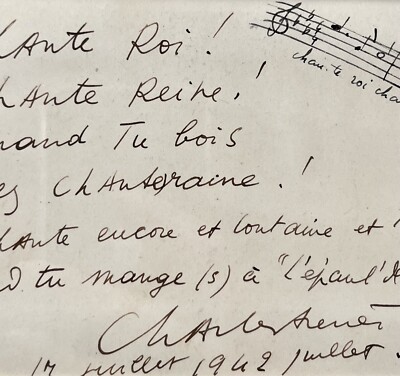 hante Roi !
chan-te roi cha
hante Reine !
uand Tu bois
es Chantereine !
hante encore et lontaine et "
d tu mange (s) à "L'épaul' de
Charles Trenet
17 juillet 1942 juillet.